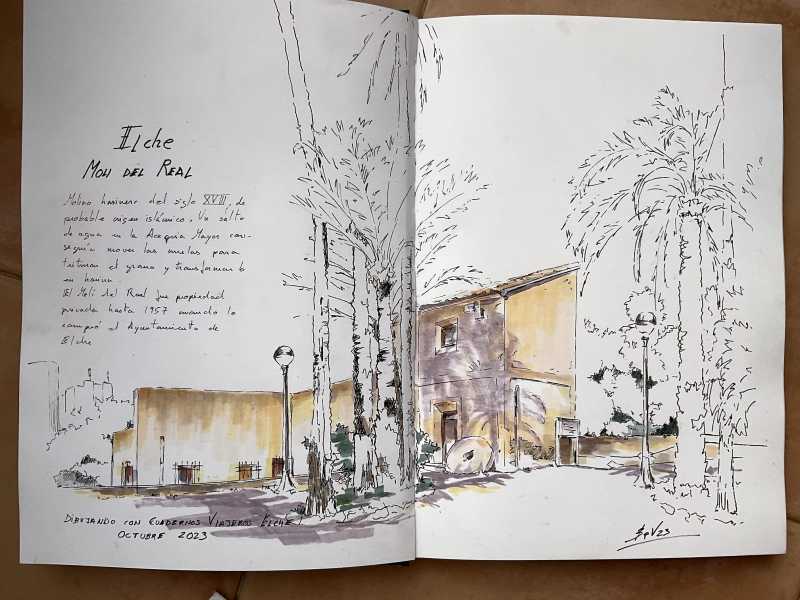 Elche
Moli del Real
Molino harinero del siglo XVIII, de
probable origen islámico. Un salto
de agua en la Acequia Mayor con-
seguía mover las muelas para
triturar el grano y transformarlo
en harina.
El Molí del Real fue propiedad
privada hasta 1957 cuando lo
compró el Ayuntamiento de
Elche
Dibujando con Cuadernos Viajeros Elche
Octubre 2023